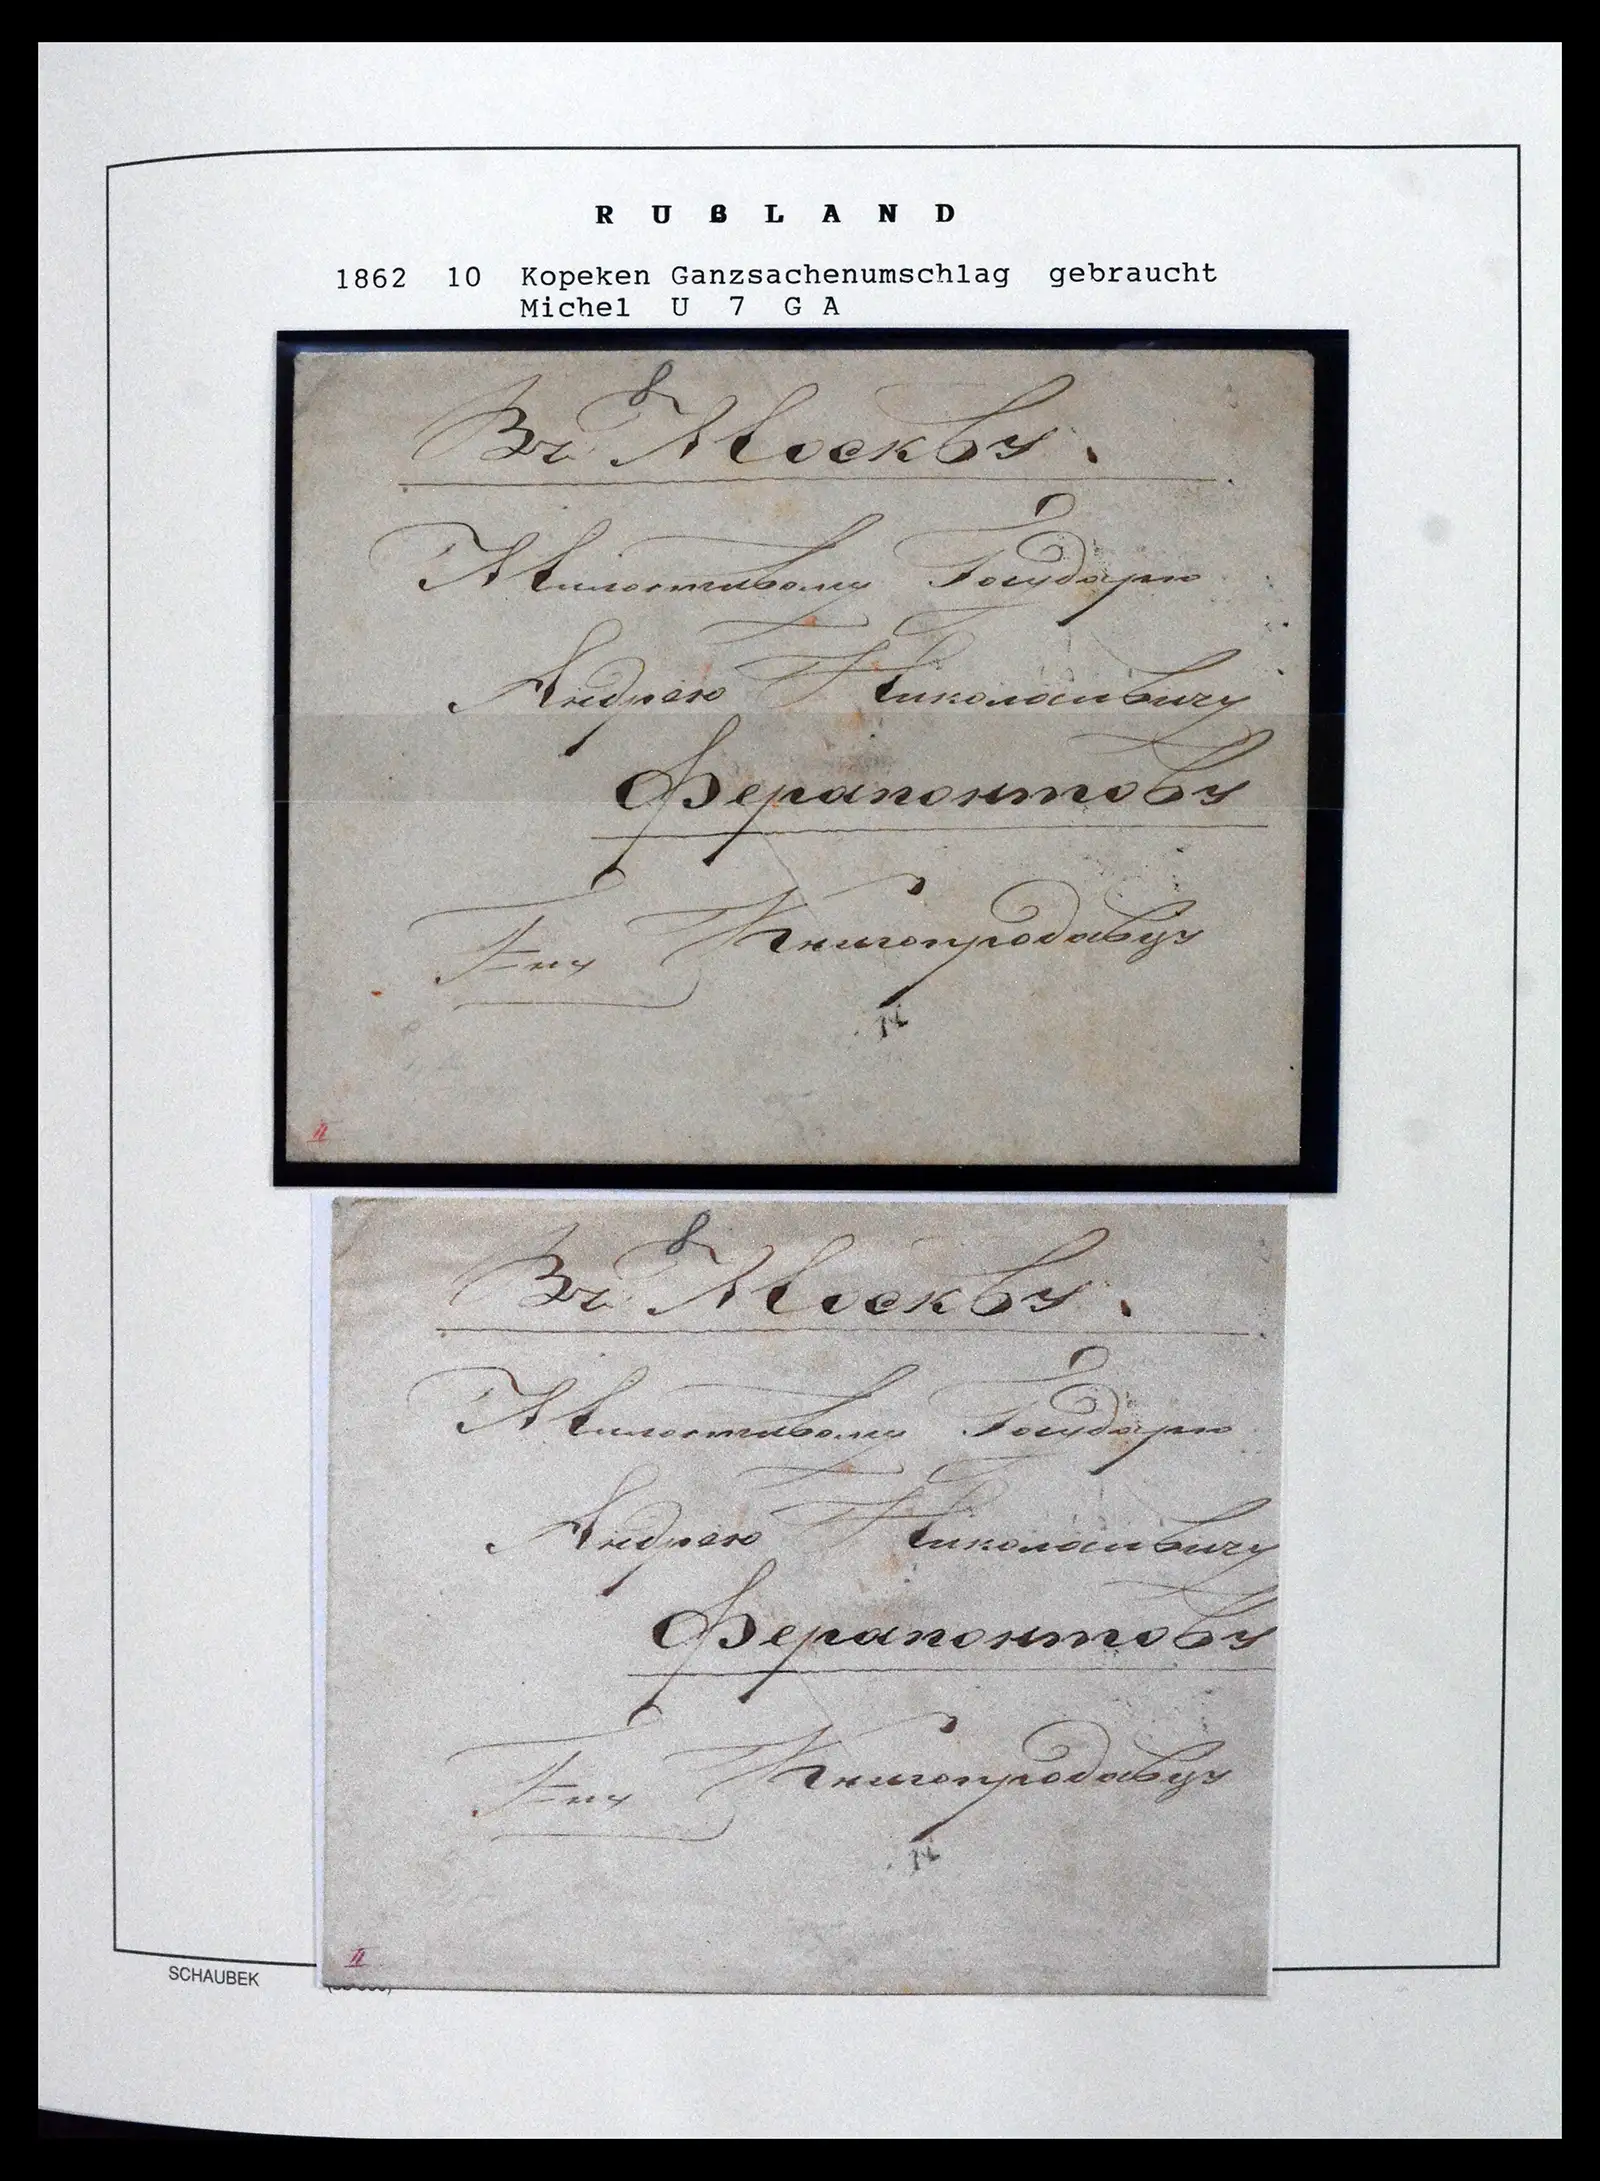 RUßLAND
1862 10 Kopeken Ganzsachenumschlag gebraucht
Michel U 7 G A
8
Въ Москву.
Милостивому Государю
Андрею Николаивичу
Ферапонтову
Гну Книгопродавцу
II
8
Въ Москву.
Милостивому Государю
Андрею Николаивичу
Ферапонтову
Гну Книгопродавцу
II
SCHAUBEK